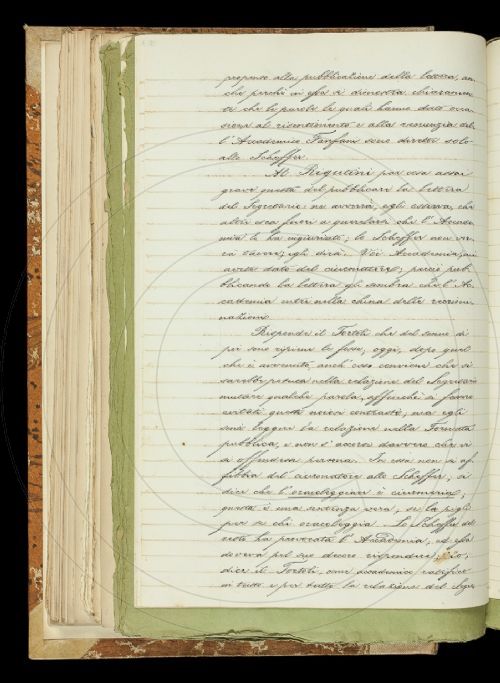 proposto alla pubblicazione della lettera, an-
che perchè in essa si dimostra chiaramen-
te che le parole le quali hanno dato occa-
sione al risentimento e alla rinunzia del-
l'Accademico Fanfani sono dirette solo
allo Scheffer.
Al Rigutini par cosa assai
grave questa del pubblicare la lettera
del Segretario: ne avverrà, egli osserva, che
altri esca fuori a querelarsi che l'Accade-
mia lo ha ingiuriato; lo Scheffer non
egli dirà: Voi, Accademia, mi
avete dato del ciurmatore; poichè pub-
blicando la lettera gli sembra che l'Ac-
cademia entri nella china delle recrimi-
nazioni.
Risponde il Tortoli che del senno di
poi sono ripiene le fosse; oggi, dopo quel
che è avvenuto, anch'esso conviene che si
sarebbe potuta nella relazione del Segretario
mutare qualche parola, affinchè si fosse
evitato questo contrasto; ma egli
sentì leggere la relazione nella Tornata
pubblica, e non s'accorse davvero che vi
si offendesse persona. In essi non si af-
fibbia del ciurmatore allo Scheffer; si
dice che l'oracoleggiare è ciurmeria;
questa è una sentenza vera; se la pigli
per se chi oracoleggia. Lo Scheffer del
resto ha provocata l'Accademia, ed essa
doveva pel suo decoro rispondere; Io,
dice il Tortoli, come Accademico ratifico
in tutto e per tutto la relazione del Segre-